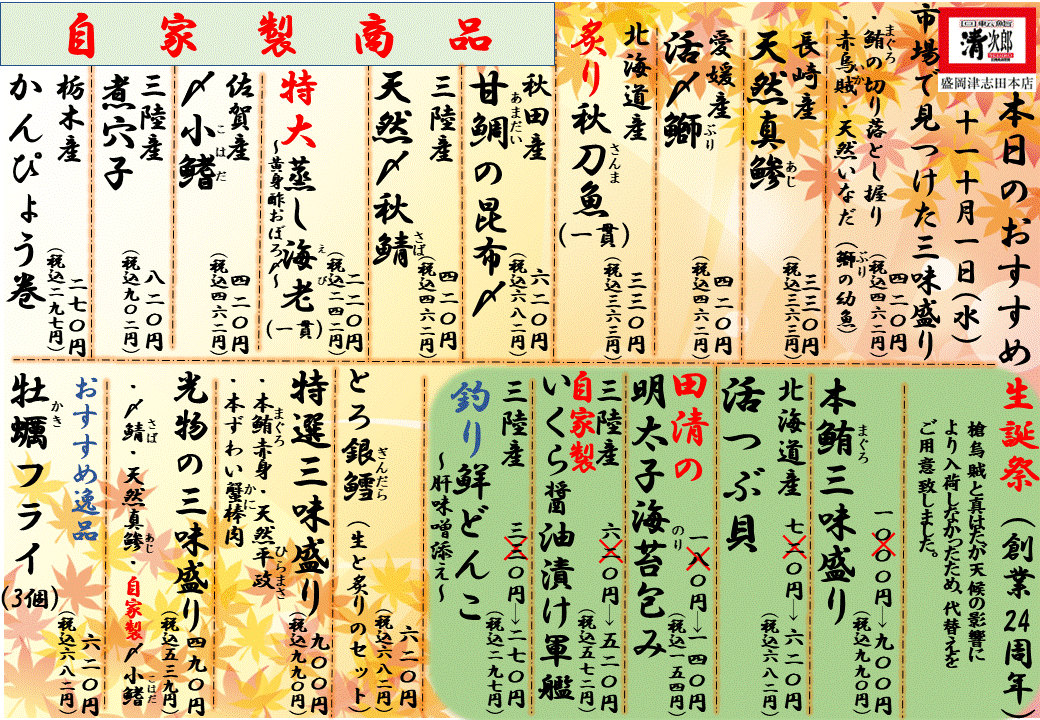 回転鮨
清次郎
盛岡津志田本店
本日のおすすめ
十一十月一日(水)
市場で見つけた三味盛り
・鮪の切り落とし握り
まぐろ
・赤烏賊・天然いなだ(鰤の幼魚)
いか
ぶり
四二〇円
(税込四六二円)
長崎産
天然真鯵
あじ
三三〇円
(税込三六三円)
愛媛産
活〆鰤
ぶり
四二〇円
(税込四六二円)
北海道産
炙り秋刀魚(一貫)
さんま
三三〇円
(税込三六三円)
自家製商品
秋田産
甘鯛の昆布〆
あまだい
六二〇円
(税込六八二円)
三陸産
天然〆秋鯖
さば
四二〇円
(税込四六二円)
特大蒸し海老(一貫)
えび
~黄身酢おぼろ〆~
二二〇円
(税込二四二円)
佐賀産
〆小鰭
こはだ
四二〇円
(税込四六二円)
三陸産
煮穴子
八二〇円
(税込九〇二円)
栃木産
かんぴょう巻
二七〇円
(税込二九七円)
生誕祭(創業24周年)
槍烏賊と真はたが天候の影響に
より入荷しなかったため、代替えを
ご用意致しました。
本鮪三味盛り
まぐろ
一〇〇〇円→九〇〇円
(税込九九〇円)
北海道産
活つぶ貝
七二〇円→六二〇円
(税込六八二円)
田清の
明太子海苔包み
のり
一八〇円→一四〇円
(税込一五四円)
三陸産
自家製
いくら醤油漬け軍艦
六二〇円→五二〇円
(税込五七二円)
三陸産
釣り鮮どんこ
~肝味噌添え~
三三〇円→二七〇円
(税込二九七円)
とろ銀鱈(生と炙りのセット)
ぎんだら
六二〇円
(税込六八二円)
特選三味盛り
・本鮪赤身・天然平政
まぐろ
ひらまさ
・本ずわい蟹棒肉
かに
九〇〇円
(税込九九〇円)
光物の三味盛り
・〆鯖・天然真鯵・自家製〆小鰭
さば
あじ
こはだ
四九〇円
(税込五三九円)
おすすめ逸品
牡蠣フライ(3個)
かき
六二〇円
(税込六八二円)